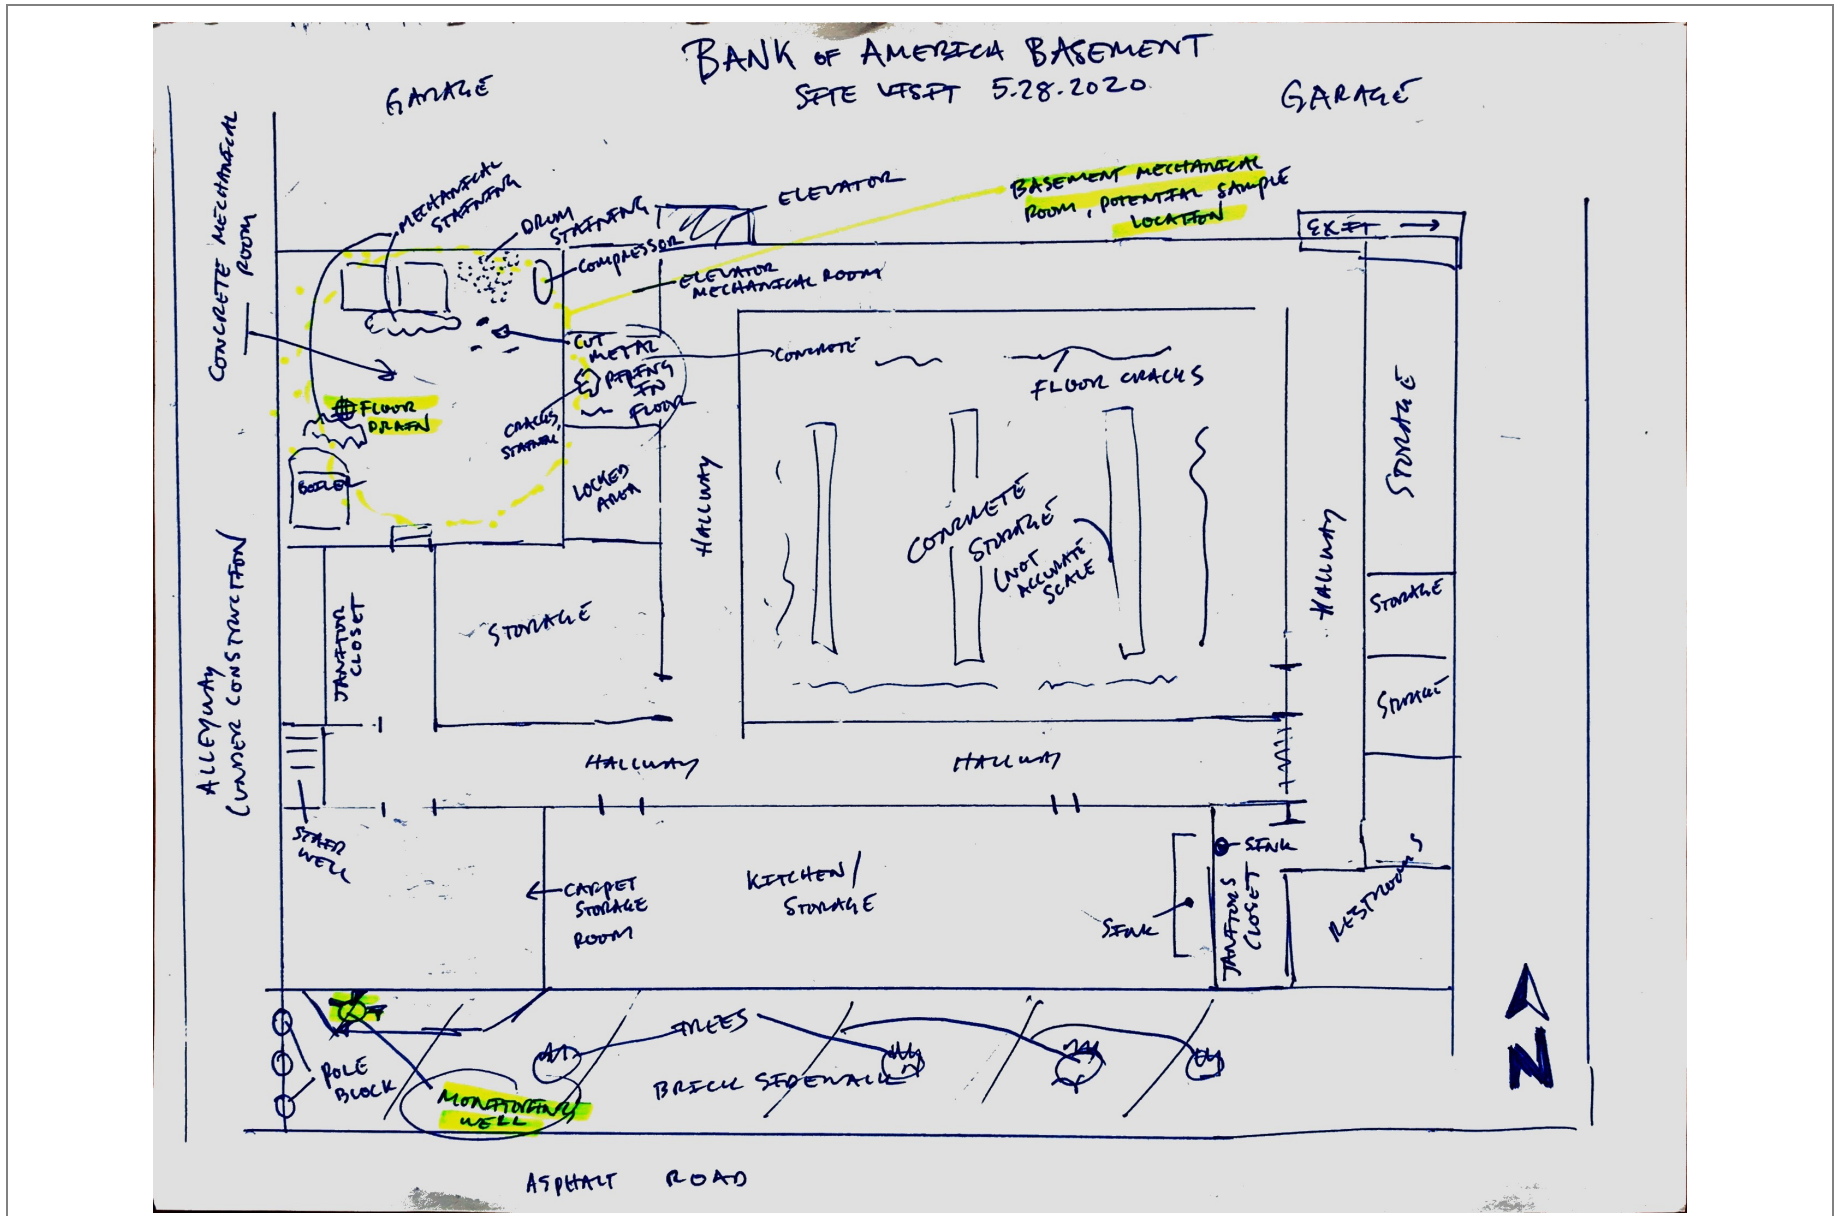 BANK OF AMERICA BASEMENT
SITE VISIT 5.28.2020
GARAGE
GARAGE
CONCRETE MECHANICAL
ROOM
MECHANICAL
STAINING
DRUM
STAINING
COMPRESSOR
ELEVATOR
BASEMENT MECHANICAL
ROOM, POTENTIAL SAMPLE
LOCATION
EXIT
ELEVATOR
MECHANICAL ROOM
CUT
METAL
PIPING
IN
FLOOR
CONCRETE
FLOOR CRACKS
FLOOR
DRAIN
CRACKS,
BOILER
LOCKED
AREA
HALLWAY
CONCRETE
STORAGE
(NOT
ACCURATE
SCALE
HALLWAY
STORAGE
STORAGE
STORAGE
ALLEYWAY
(UNDER CONSTRUCTION)
JANITOR
CLOSET
STORAGE
HALLWAY
HALLWAY
STAIR
WELL
CARPET
STORAGE
ROOM
KITCHEN/
STORAGE
SINK
SINK
JANITORS
CLOSET
RESTROOMS
TREES
POLE
BLOCK
MONITORING
WELL
BRICK SIDEWALK
N
ASPHALT ROAD